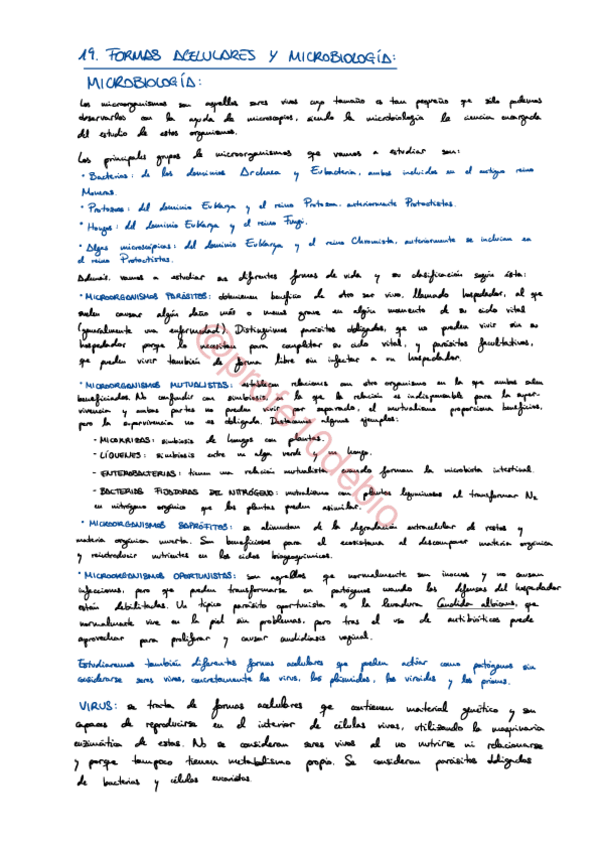 19. FORMAS ACELULARES Y MICROBIOLOGÍA:
MICROBIOLOGÍA:
Los microorganismos son aquellos seres vivos cuyo tamaño es tan pequeño que sólo podemos
observarlos con la ayuda de microscopios, siendo la microbiología la ciencia encargada
del estudio de estos organismos.
Los principales grupos de microorganismos que vamos a estudiar son:
• Bacterias: de los dominios Archaea y Eubacteria, ambos incluidos en el antiguo reino
Moneras.
• Protozoos: del dominio Eukarya y el reino Protozoa, anteriormente Protoctistas.
• Hongos: del dominio Eukarya y el reino Fungi.
• Algas microscópicas: del dominio Eukarya y el reino Chromista, anteriormente se incluían en
el reino Protoctistas.
Además, vamos a estudiar sus diferentes formas de vida y su clasificación según ésta:
• MICROORGANISMOS PARÁSITOS: obtienen beneficio de otro ser vivo, llamado hospedador, al que
suelen causar algún daño más o menos grave en algún momento de su ciclo vital
(generalmente una enfermedad). Distinguimos parásitos obligados, que no pueden vivir sin su
hospedador porque lo necesitan para completar su ciclo vital, y parásitos facultativos,
que pueden vivir también de forma libre sin infectar a un hospedador.
• MICROORGANISMOS MUTUALISTAS: establecen relaciones con otro organismo en la que ambos salen
beneficiados. No confundir con simbiosis, en la que la relación es indispensable para la super-
vivencia y ambas partes no pueden vivir por separado, el mutualismo proporciona beneficios,
pero la supervivencia no es obligada. Destacamos algunos ejemplos:
- MICORRIZAS: simbiosis de hongos con plantas.
- LÍQUENES: simbiosis entre un alga verde y un hongo.
- ENTEROBACTERIAS: tienen una relación mutualista cuando forman la microbiota intestinal.
- BACTERIAS FIJADORAS DEL NITRÓGENO: mutualismo con plantas leguminosas al transformar N₂
en nitrógeno orgánico que las plantas pueden asimilar.
• MICROORGANISMOS SAPRÓFITOS: se alimentan de la degradación extracelular de restos y
materia orgánica muerta. Son beneficiosos para el ecosistema al descomponer materia orgánica
y reintroducir nutrientes en los ciclos biogeoquímicos.
• MICROORGANISMOS OPORTUNISTAS: son aquellos que normalmente son inocuos y no causan
infecciones, pero que pueden transformarse en patógenos cuando las defensas del hospedador
están debilitadas. Un típico parásito oportunista es la levadura Candida albicans, que
normalmente vive en la piel sin problemas, pero tras el uso de antibióticos puede
aprovechar para proliferar y causar candidiasis vaginal.
Estudiaremos también diferentes formas acelulares que pueden actuar como patógenos sin
considerarse seres vivos, concretamente los virus, los plásmidos, los viroides y los priones.
VIRUS: se trata de formas acelulares que contienen material genético y son
capaces de reproducirse en el interior de células vivas, utilizando la maquinaria
enzimática de estas. No se consideran seres vivos al no nutrirse ni relacionarse
y porque tampoco tienen metabolismo propio. Se consideran parásitos obligados
de bacterias y células eucariotas.
@profe10debio